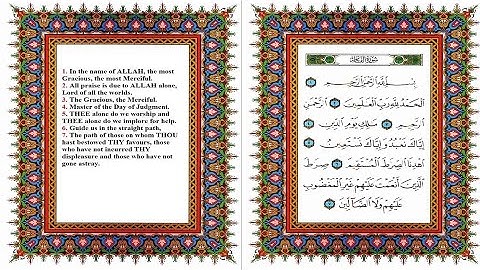 1. In the name of ALLAH, the most
Gracious, the most Merciful.
2. All praise is due to ALLAH alone,
Lord of all the worlds.
3. The Gracious, the Merciful.
4. Master of the Day of Judgment.
5. THEE alone do we worship and
THEE alone do we implore for help.
6. Guide us in the straight path,
7. The path of those on whom THOU
hast bestowed THY favours, those
who have not incurred THY
displeasure and those who have not
gone astray.
سُورَةُ الفَاتِحَة
بِسْمِ اللَّهِ الرَّحْمَٰنِ الرَّحِيمِ ١
الْحَمْدُ لِلَّهِ رَبِّ الْعَالَمِينَ ٢ الرَّحْمَٰنِ
الرَّحِيمِ ٣ مَالِكِ يَوْمِ الدِّينِ ٤
إِيَّاكَ نَعْبُدُ وَإِيَّاكَ نَسْتَعِينُ ٥
اهْدِنَا الصِّرَاطَ الْمُسْتَقِيمَ ٦ صِرَاطَ
الَّذِينَ أَنْعَمْتَ عَلَيْهِمْ غَيْرِ الْمَغْضُوبِ
عَلَيْهِمْ وَلَا الضَّالِّينَ ٧